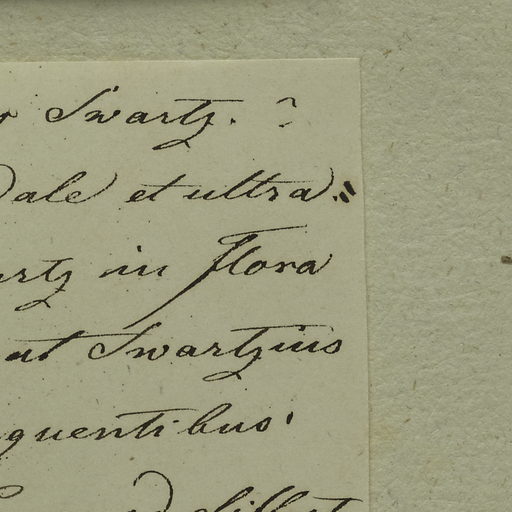 Swartz. ?
dale et ultra."
artz in Flora
ut Swartzius
quentibus